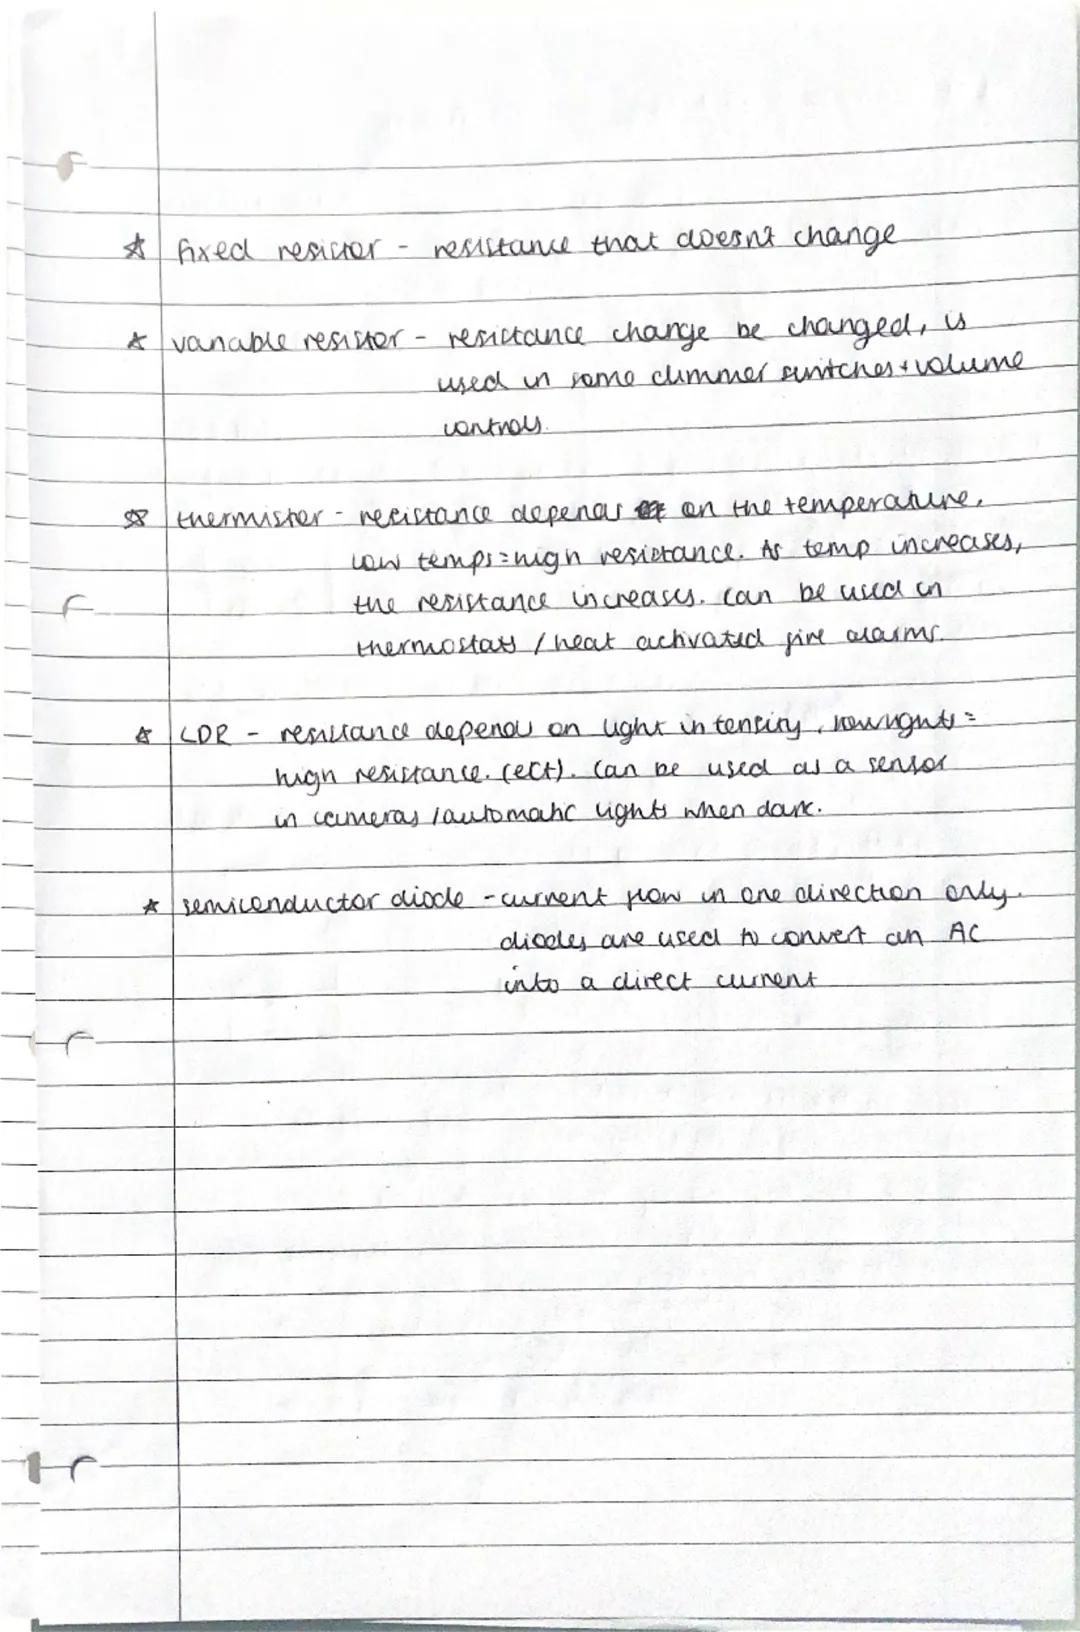 ☆ fixed resistor - resistance that doesn't change
☆ variable resistor - resistance change be changed, is
used in some dimmer switches + volume
controls.
☆ thermister - resistance depends on the temperature.
Low temps = high resistance. As temp increases,
the resistance increases. Can be used in
thermostats / heat activated fire alarms.
☆ LDR - resistance depends on light intensity, low lights =
high resistance. (ect). Can be used as a sensor
in cameras / automatic lights when dark.
☆ semiconductor diode - current flow in one direction only.
diodes are used to convert an AC
into a direct current